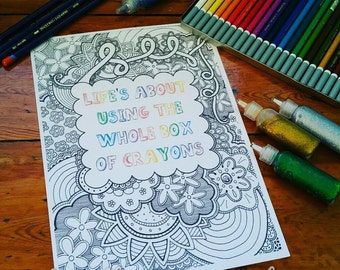 LIFE'S ABOUT
USING THE
WHOLE BOX
OF CRAYONS